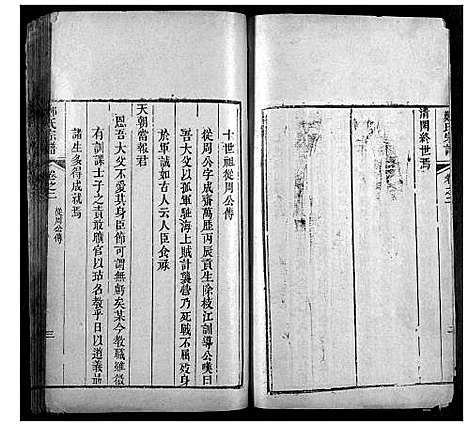 清閒終世焉
卷之二
十世祖從周公傳
從周公字成齋萬歷丙辰貢生除枝江訓導公嘆曰
吾大父以孤軍馳海上賊計襲營乃死戰不少屈身
於軍誠如古人云人臣食祿
天朝當報君
恩吾大父不愛其身臣節可謂無虧矣某今教職雖微
有訓課士子之責敢曠官以玷名教乎日以道義
諸生多得成就焉
氏宗譜
卷之二
從周公傳
三